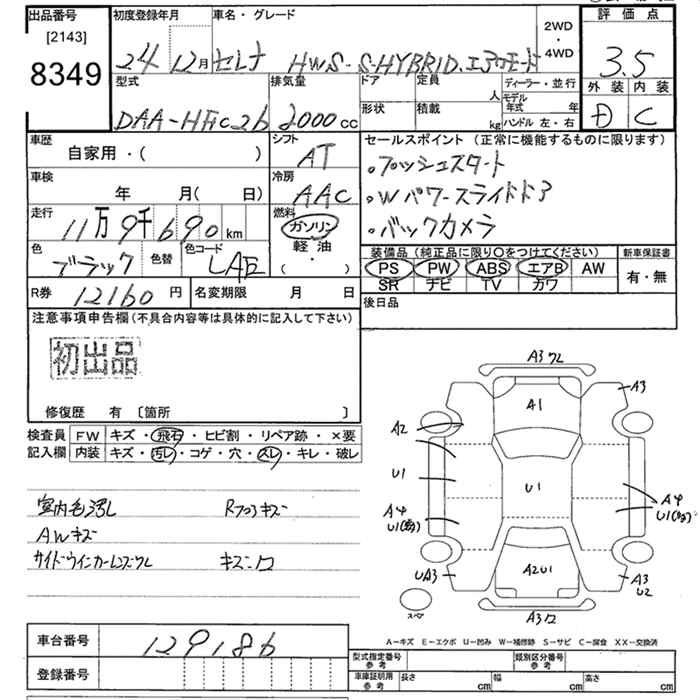 出品番号
[2143]
8349
初度登録年月
24 12月
車名・グレード
セレナ HWS-S-HYBRID.エアロモード
2WD
・
4WD
評価点
3.5
外装 内装
D C
型式
DAA-HFC26
排気量
2000cc
ドア
定員
人
形状
積載
kg
ディーラー・並行
モデル年式 年
ハンドル 左・右
車歴
自家用・( )
シフト
AT
車検
年 月( 日)
冷房
AAC
走行
11万9千690km
燃料
ガソリン
軽油・
( )
色
ブラック
色替
色コード
LAE
R券
12160円
名変期限 月 日
セールスポイント(正常に機能するものに限ります)
・プッシュスタート
・Wパワースライドドア
・バックカメラ
装備品(純正品に限り〇をつけてください)
PS PW ABS エアB AW
SR ナビ TV カワ
新車保証書
有・無
後日品
注意事項申告欄(不具合内容等は具体的に記入して下さい)
初出品
修復歴 有 〔箇所 〕
検査員記入欄
FW キズ・飛石・ヒビ割・リペア跡・×要
内装 キズ・汚レ・コゲ・穴・スレ・キレ・破レ
室内毛汚れ Rフロアキズ
AWキズ
サイドウインカーレンズワレ キズ・ワ
A3ワレ
A3
A1
A2
U1
U1
A4
U1(多)
A4
U1(多)
UA3
A2U1
A3
U2
スペア
A3ワ
A−キズ E−エクボ U−凹み W−補修跡 S−サビ C−腐食 XX−交換済
車台番号
129186
登録番号
型式指定番号
参考
類別区分番号
参考
車庫証明用
参考
長さ cm
幅 cm
高さ cm